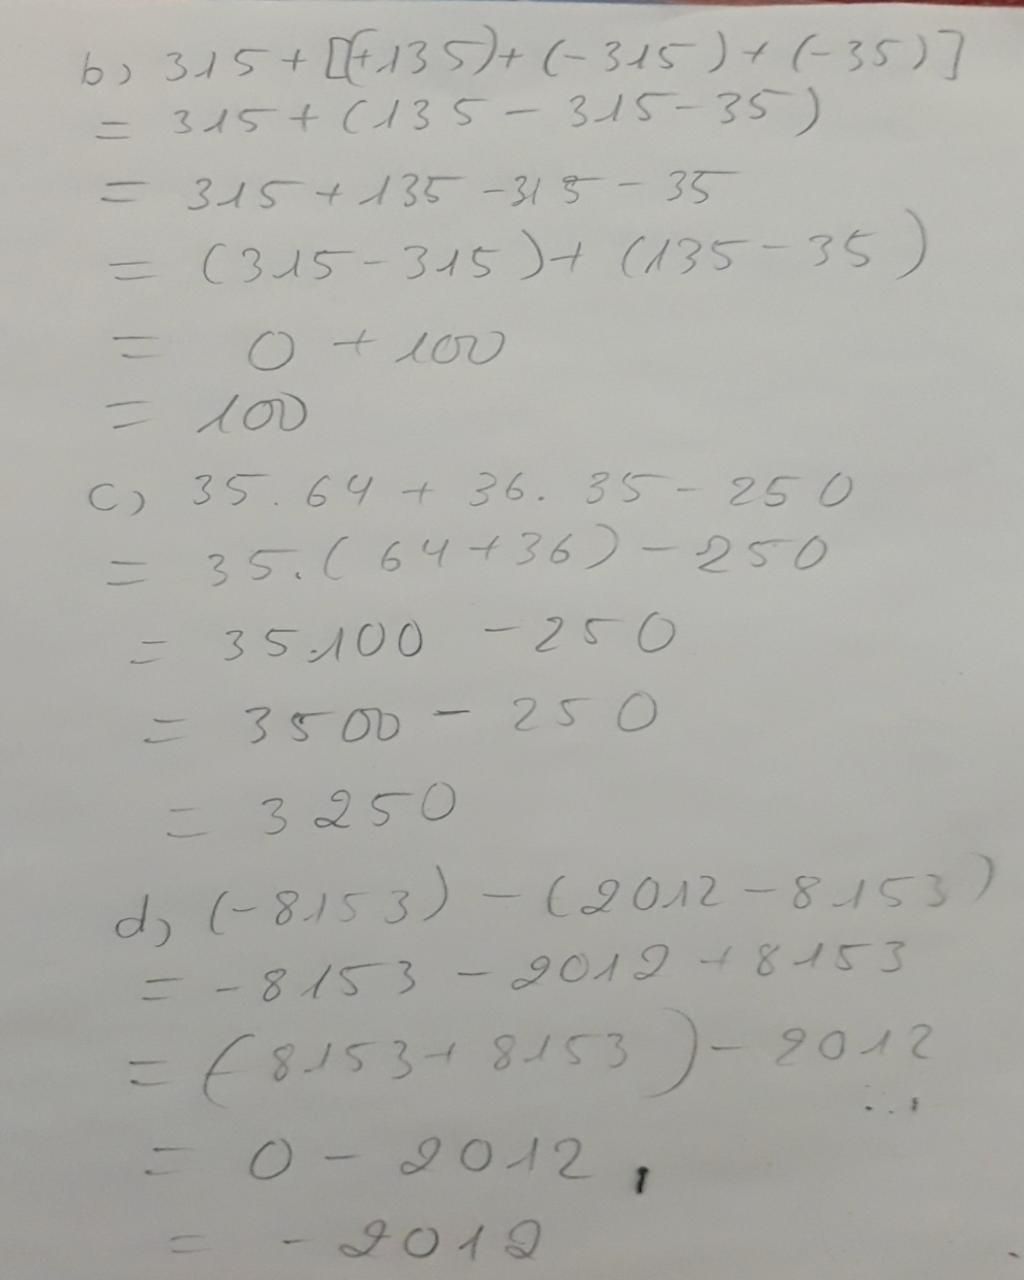 b) 315 + [(+135) + (-315) + (-35)]
= 315 + (135 - 315 - 35)
= 315 + 135 - 315 - 35
= (315 - 315) + (135 - 35)
= 0 + 100
= 100
c) 35 . 64 + 36 . 35 - 250
= 35 . (64 + 36) - 250
= 35 . 100 - 250
= 3500 - 250
= 3250
d) (-8153) - (2012 - 8153)
= -8153 - 2012 + 8153
= (-8153 + 8153) - 2012
= 0 - 2012
= -2012